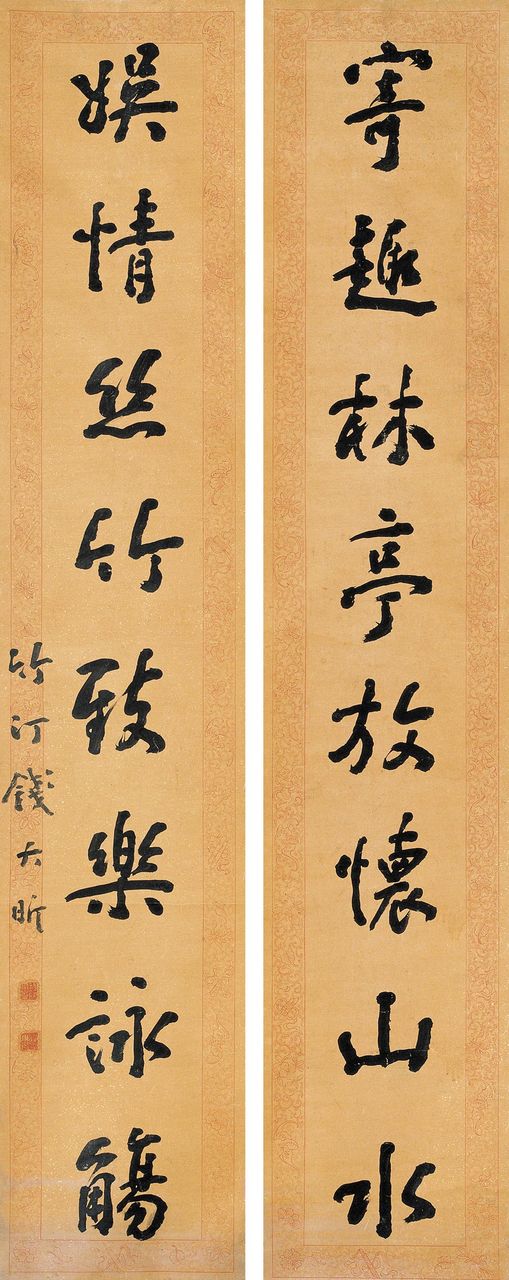 寄趣林亭放懷山水
娛情絲竹致樂詠觴
竹汀錢大昕